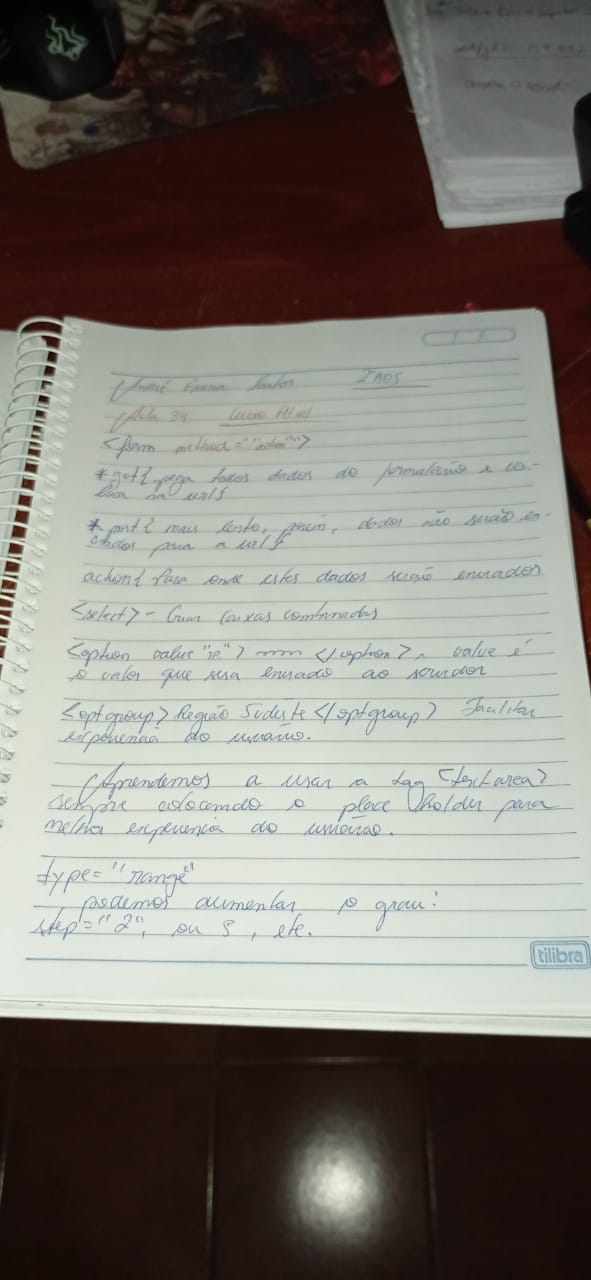 2ADS
Aula 34 Curso Html
<form method="action">
*get{ pega todos dados do formulário e co-
loca na url}
*post{ mais lento, porém, dados não serão en-
viados para a url}
action{ Para onde estes dados serão enviados
<select> - Criam caixas combinadas
<option value "sp"> </option>, value é
o valor que sera enviado ao servidor
<optgroup> Região Sudeste </optgroup> Facilitar
experiência do usuário.
Aprendemos a usar a tag <textarea>
sempre colocando o place holder para
melhor experiencia do usuário.
type="range"
podemos aumentar o grau:
step="2", ou 5, etc.
tilibra